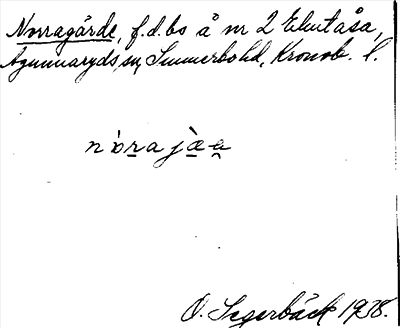 Norragårde, f.d. bs å nr 2 Eknaåsa,
Agunnaryds sn, Sunnerbo hd, Kronob. l.
nòrajæ̀e
O. Segerbäck 1938.